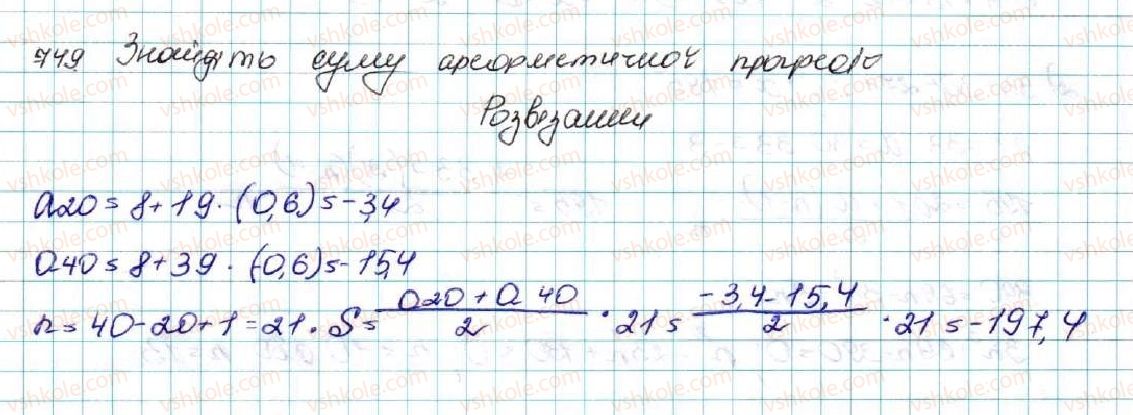 749 Знайдіть суму арефметичної прогресіі
Розвезання
a20 = 8 + 19 · (0,6) = -3,4
a40 = 8 + 39 · (-0,6) = -15,4
n = 40 - 20 + 1 = 21. S = \frac{a20 + a40}{2} · 21 = \frac{-3,4 - 15,4}{2} · 21 = -197,4